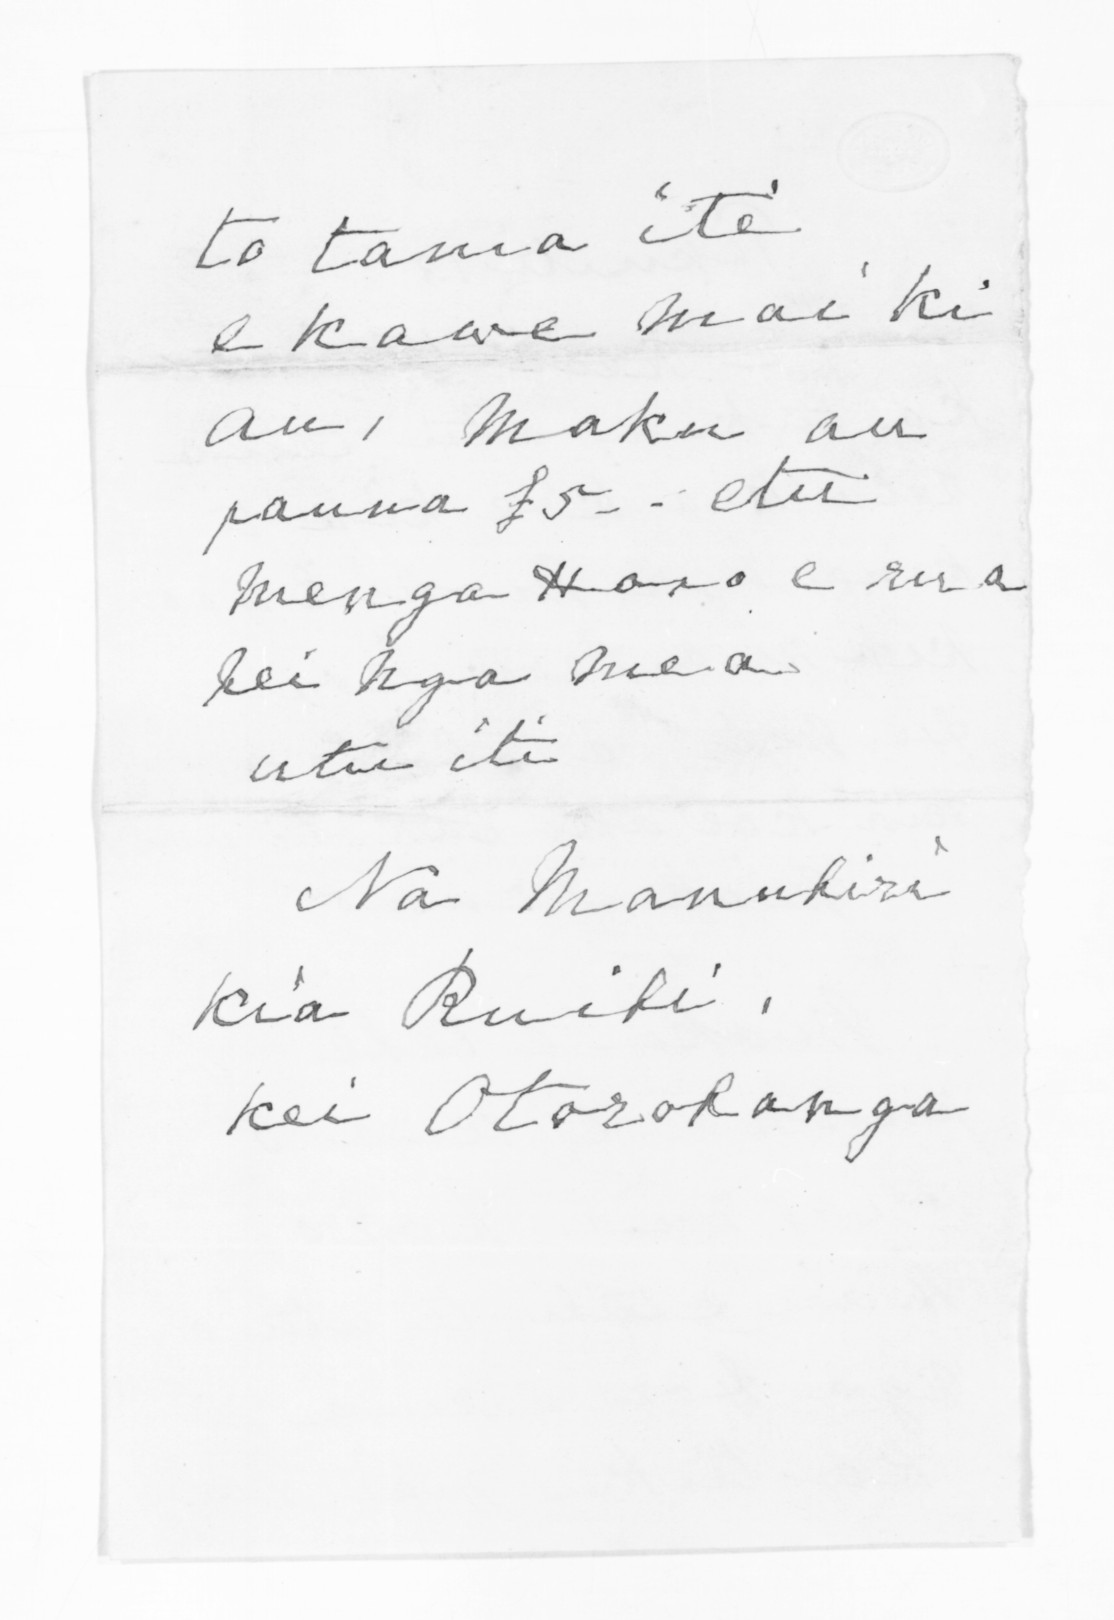 to tama iti
e kawe mai ki
au, maku au
pauna £5-- etu
menga Haro e rua
hei nga mea
utu iti
Na Manuhiri
kia Ruihi,
kei Otorohanga